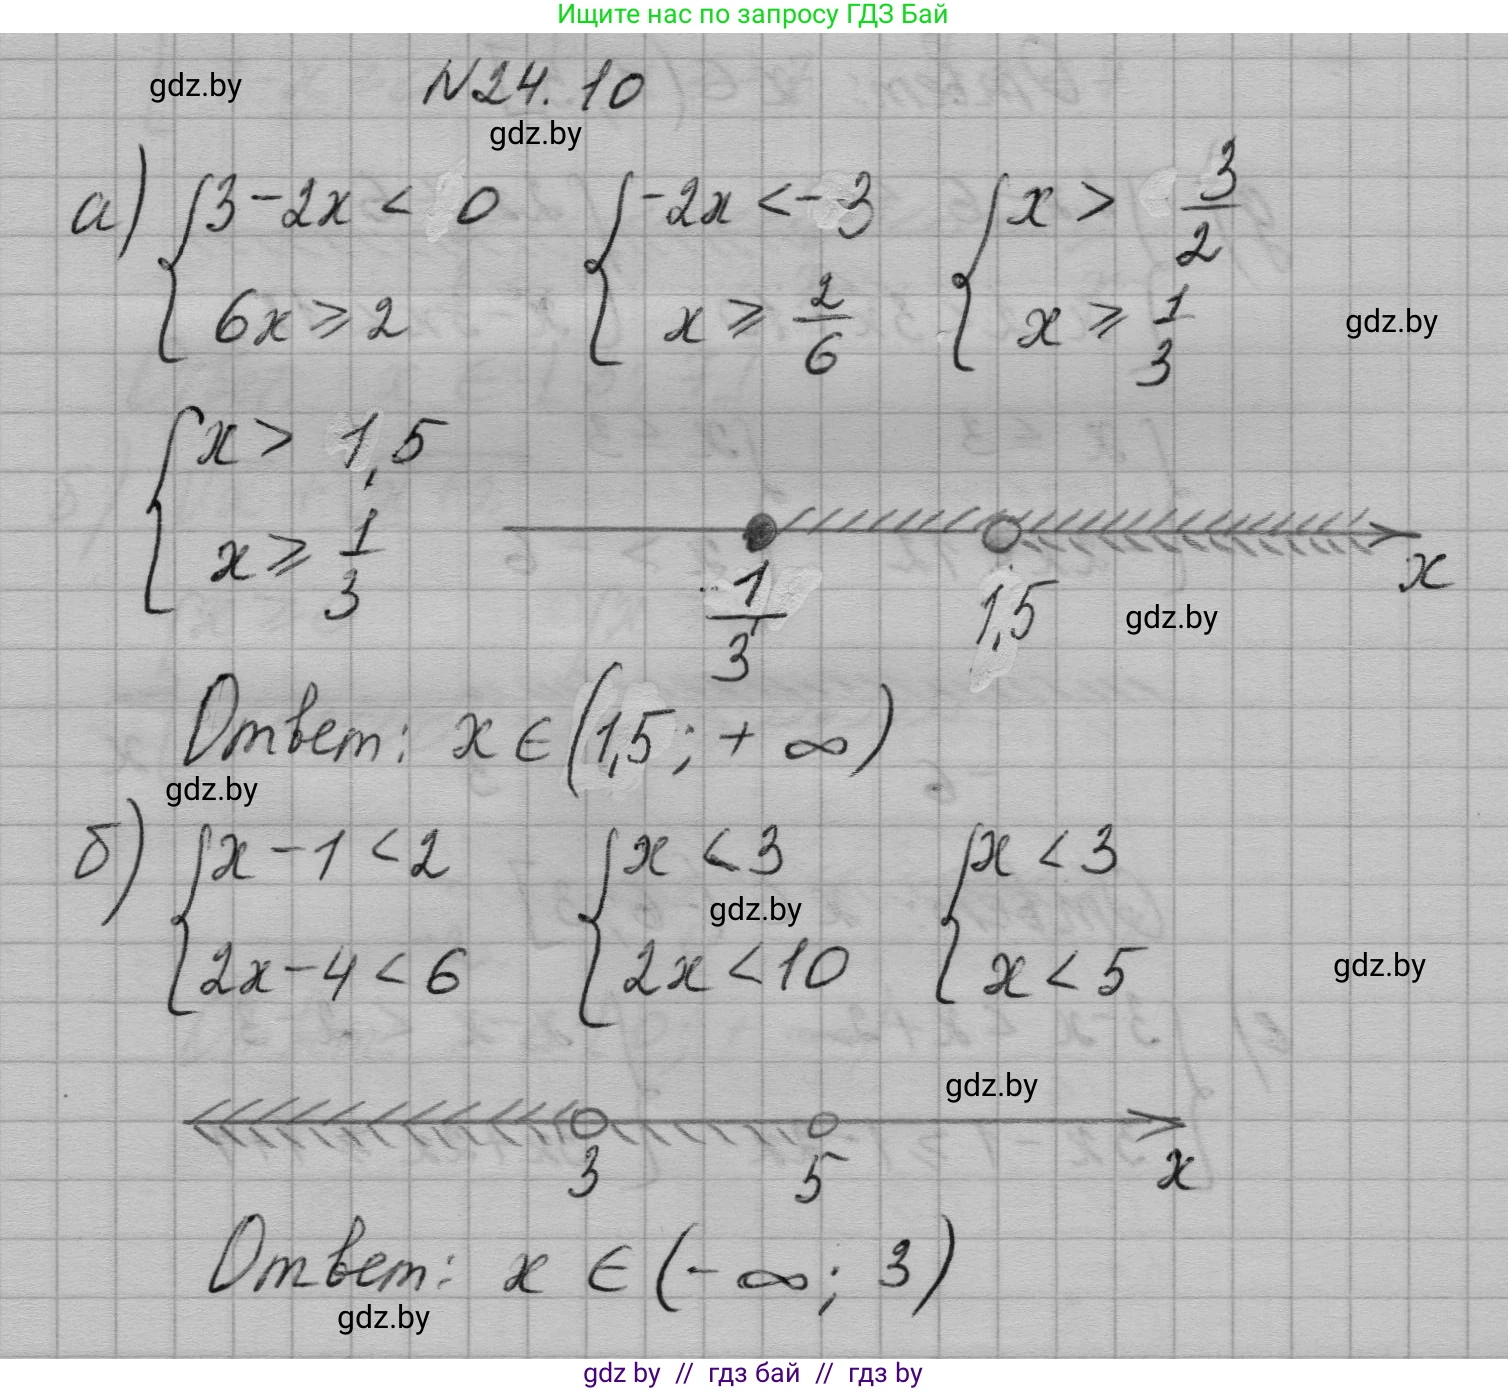 Ищите нас по запросу ГДЗ Бай
gdz.by
N24.10
gdz.by
а) { 3-2x < 0 { -2x < -3 { x > 3/2
6x ≥ 2 x ≥ 2/6 x ≥ 1/3
gdz.by
{ x > 1,5
x ≥ 1/3
1/3 1,5 x
gdz.by
Ответ: x ∈ (1,5; + ∞)
gdz.by
б) { x - 1 < 2 { x < 3 { x < 3
gdz.by
2x - 4 < 6 2x < 10 x < 5
gdz.by
gdz.by
3 5 x
Ответ: x ∈ (- ∞; 3)
gdz.by
gdz by // гдз бай // гдз by